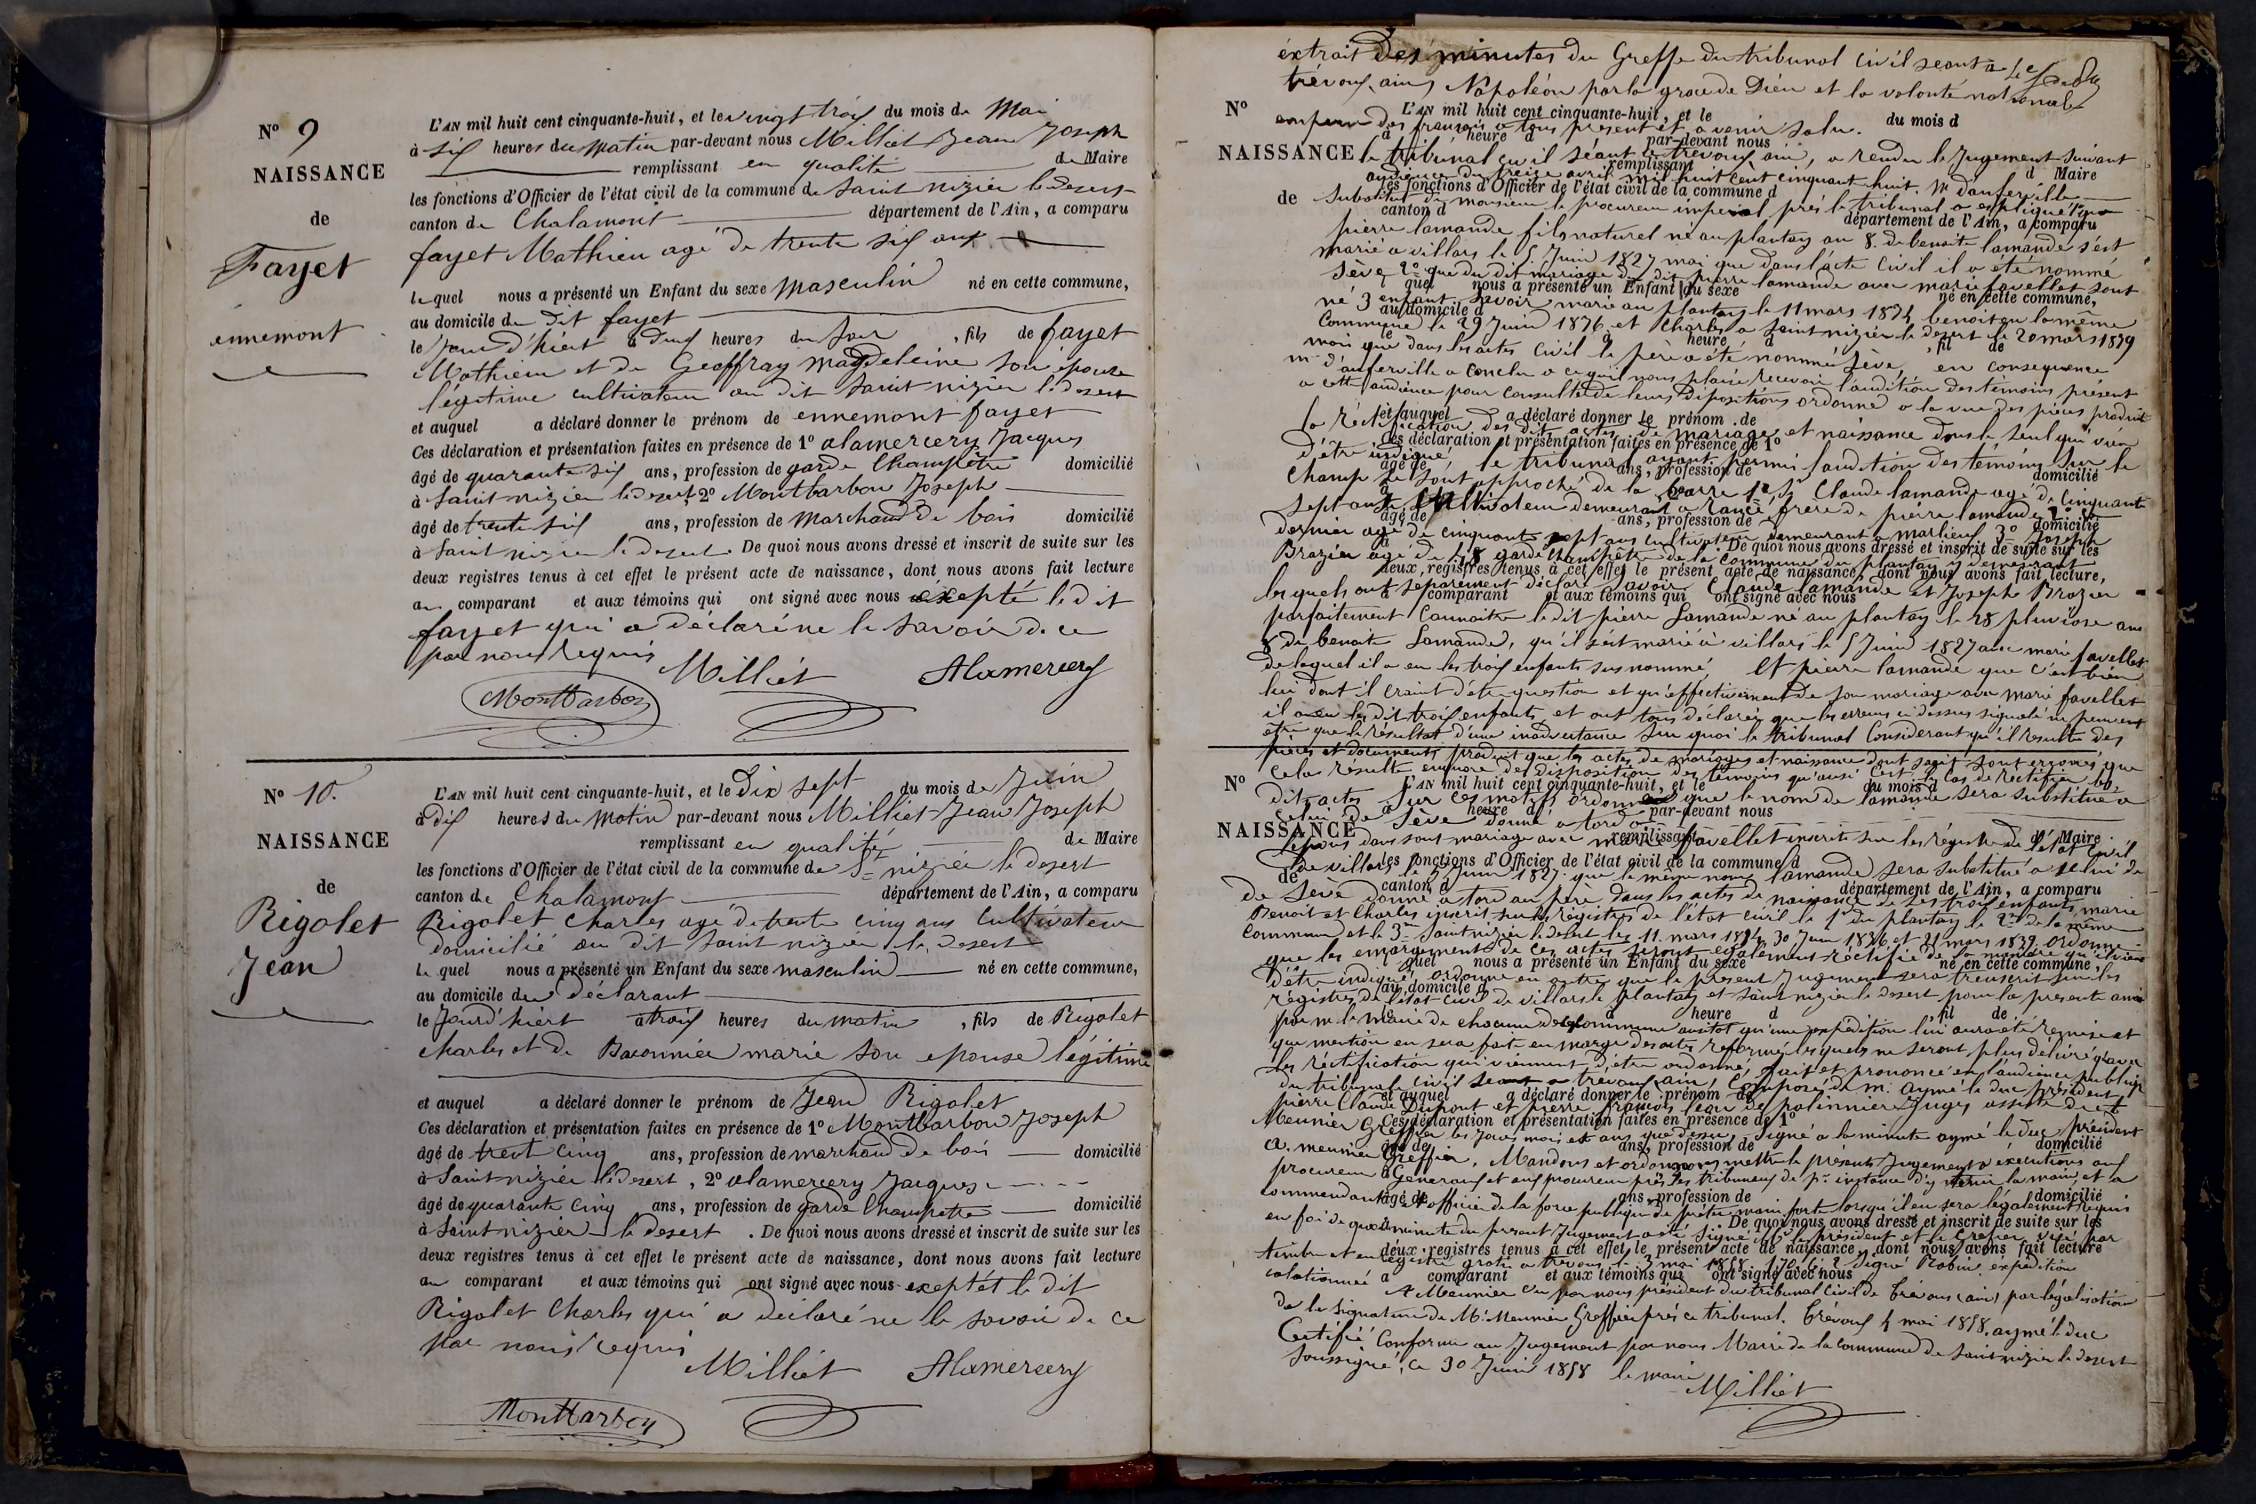 N° 9
NAISSANCE
de
Fayet
ennemont
L'AN mil huit cent cinquante-huit, et le vingt trois du mois de Mai
à six heures du matin par-devant nous Milliet Jean Joseph
remplissant en qualité de Maire
les fonctions d'Officier de l'état civil de la commune de Saint nizier le Desert
canton de Chalamont département de l'Ain, a comparu
fayet Mathieu agé de trente six ans
lequel nous a présenté un Enfant du sexe masculin né en cette commune,
au domicile du dit fayet
le jour d'hier à deux heures du soir, fils de fayet
Mathieu et de Geoffray Magdeleine son épouse
légitime cultivateur au dit Saint nizier le desert
et auquel a déclaré donner le prénom de ennemont fayet
Ces déclaration et présentation faites en présence de 1° alamercery Jacques
âgé de quarante six ans, profession de garde Champêtre domicilié
à Saint nizier le desert, 2° Montbarbon Joseph
âgé de trente six ans, profession de Marchand de bois domicilié
à Saint nizier le desert. De quoi nous avons dressé et inscrit de suite sur les
deux registres tenus à cet effet le présent acte de naissance, dont nous avons fait lecture
au comparant et aux témoins qui ont signé avec nous excepté le dit
fayet qui a déclaré ne le savoir de ce
par nous requis
Milliet Alamercery
Montbarbon
N° 10.
NAISSANCE
de
Rigolet
Jean
L'AN mil huit cent cinquante-huit, et le Dix sept du mois de Juin
à dix heures du matin par-devant nous Milliet Jean Joseph
remplissant en qualité de Maire
les fonctions d'Officier de l'état civil de la commune de St nizier le desert
canton de Chalamont département de l'Ain, a comparu
Rigolet Charles agé de trente cinq ans Cultivateur
domicilié au dit Saint nizier le Desert
le quel nous a présenté un Enfant du sexe masculin né en cette commune,
au domicile du déclarant
le Jourd'hiert à trois heures du matin, fils de Rigolet
charles et de marie son epouse légitime
et auquel a déclaré donner le prénom de Jean Rigolet
Ces déclaration et présentation faites en présence de 1° Montbarbon Joseph
âgé de trent cinq ans, profession de marchand de bois domicilié
à Saint nizier le desert, 2° alamercery Jacques
âgé de quarante cinq ans, profession de garde Champetre domicilié
à Saint nizier le desert. De quoi nous avons dressé et inscrit de suite sur les
deux registres tenus à cet effet le présent acte de naissance, dont nous avons fait lecture
au comparant et aux témoins qui ont signé avec nous exeptét le dit
Rigolet Charles qui a déclaré ne le savoir de ce
par nous requis
Milliet Alamercery
Montbarbon
éxtrait Des minutes du Greffe du tribunal Civil seant a
trévoux, ain, Napoléon par la grace de Dieu et la volonté nationale
N° L'AN mil huit cent cinquante-huit, et le du mois d
empereur des français a tous present et avenir salu.
à heure d par-devant nous
NAISSANCE le tribunal civil séant a trevoux ain, a rendu le Jugement suivant
remplissant d Maire
audience du treize avril mil huit cent cinquant huit. Mr d'anferville
les fonctions d'Officier de l'état civil de la commune d
de Substitut de monsieur le procureur impérial près le tribunal a expliqué que
canton d département de l'Ain, a comparu
pierre lamande fils naturel né au plantay an 8. de benoite lamande s'est
marié a villars le 5 Juin 1827 mai que dans l'acte Civil il a été nommé
Sève, 2° que du dit mariage du dit pierre lamande avec marie favellet sont
quel nous a présenté un Enfant du sexe né en cette commune,
né 3 enfant savoir marie au plantay le 11 mars 1834 benoit au la même
au domicile d
Commune le 29 Juin 1836 et Charles a saint nizier le desert le 20 mars 1839
le à heure d, fil de
mais que dans les actes Civil le père a été nommé Sève, en consequence
mr d'anferville a conclu a ce qu'il nous plaise recevoir l'audition des témoins présent
a cette audience pour ensuite de leurs dipositions ordonné a la vue des pièces produit
et auquel a déclaré donner le prénom de
la réctification des dit actes de mariage et naissance dans le seul qui vien
Ces déclaration et présentation faites en présence de 1°
d'être indiqué le tribunal ayant permi l'audition des temoins sur le
âgé de ans, profession de domicilié
Champ se sont approché de la barre 1° Claude lamande agé de Cinquante
sept ans cultivateur demeurant a rancé frère de pierre lamande 2°
âgé de ans, profession de domicilié
dernier agé de cinquante sept ans cultivateur demeurant a marlieux 3° Joseph
à De quoi nous avons dressé et inscrit de suite sur les
Brazier agé de 48 garde champêtre de la Commune du plantay y demeurant
deux registres tenus à cet effet le présent acte de naissance, dont nous avons fait lecture,
les quels ont separement déclaré savoir Claude lamande et Joseph Brazier
comparant et aux témoins qui ont signé avec nous
parfaitement Connaitre le dit pierre Lamande né au plantay le 28 pluviose an
8 de benoite Lamande, qu'il s'est marié a villars le 5 Juin 1827 avec marie favellet
de laquel il a eu les trois enfants sus nommé Et pierre lamande que c'est bien
lui dont il etre question et qu'effectivement de son mariage avec marie favellet
il a eu les dit trois enfants, et ont tous déclaré que les erreurs ci dessus signalé ne peuvent
être que le résultat d'une inadvertance sur quoi le tribunal Considerant qu'il resulte des
pièces et documents produit que les actes de mariages et naissance dont sagit sont erronés que
N° cela résulte encore des disposition des témoins qu'ainsi c'est le Cas de rectifier les
L'AN mil huit cent cinquante-huit, et le du mois d
dits actes sur ces motifs ordonne que le nom de lamande sera substitué a
à heure d par-devant nous
celui de Sève donné a tord
NAISSANCE remplissant d Maire
dans sont mariage avec marie favellet inscrit sur les régistre de l'état civil
les fonctions d'Officier de l'état civil de la commune d
de
de villars le 5 Juin 1827. que le même nom lamande sera substitué a celui de
canton d département de l'Ain, a comparu
de Sève donné a tord au père dans les actes de naissance de ses trois enfants, marie
Benoit et Charles inscrit sur les régistres de l'état civil le 1er du plantay le 2me de la même
Commune et le 3me Saint nizier le desert les 11 mars 1834, 30 Juin 1836 et 21 mars 1839. Ordonne
que les emargements de ces actes seront également réctifié de la manière qu'il vien
quel nous a présenté un Enfant du sexe né en cette commune,
d'être indiqué, ordonne en outre que le présent Jugement sera transcrit sur les
au domicile d
régistres de l'état civil de villars le plantay et saint nizier le desert pour la presente année
le à heure d, fil de
par m. le maire de chacune des commune aussitot qu'une expédition lui aura été remise et
que mention en sera faite en marge des actes reformé lesquels ne seront plus délivré qu'avec
les réctification qui viennent d'être ordonné, fait et prononcé en l'audience publique
du tribunal civil seant a trevoux, ain, Composé de m. aymé le duc président
et auquel a déclaré donner le prénom de
pierre Claude Dupont et pierre françois leon de polinnier Juges assisté de
Ces déclaration et présentation faites en présence de 1°
Meunier Greffier les Jours mois et ans que dessus, Signé a la minute aymé le duc président
âgé de ans, profession de domicilié
a. meunier Greffier. Mandons et ordonnons mettre le présents Jugement a exécutions aux
procureur Généraux et aux procureur près les tribunaux de pr instance d'y tenir la main, et a
âgé de ans, profession de domicilié
commendant et officier de la force publique de prêter main forte lorsqu'il en sera légalement requis
De quoi nous avons dressé et inscrit de suite sur les
en foi de quoi la minute du present Jugement a été signé par le président et le Greffier visé par
deux registres tenus à cet effet le présent acte de naissance dont nous avons fait lecture
timbre et en régistré gratis a trevoux le 3 mai 1858 signé Robin expédition
a comparant et aux témoins qui ont signé avec nous
colationneé a Meunier vu par nous président du tribunal Civil de trévoux (ain) par légalisation
de la signature de Mr Meunier Greffier près ce tribunal. Trévoux 4 mai 1858. aymé le duc
Certifié Conforme au Jugement par nous Maire de la Commune de Saint nizier le desert
soussigné, ce 30 Juin 1858 le maire
Milliet